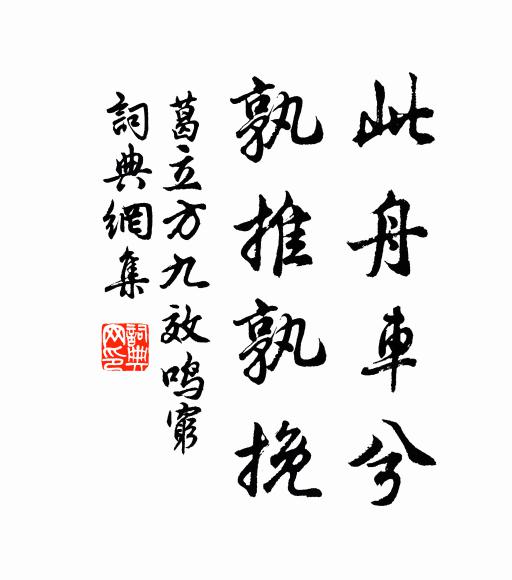 此舟車兮
孰推孰挽
葛立方九效鸣窮
詞典網集
詞典网印